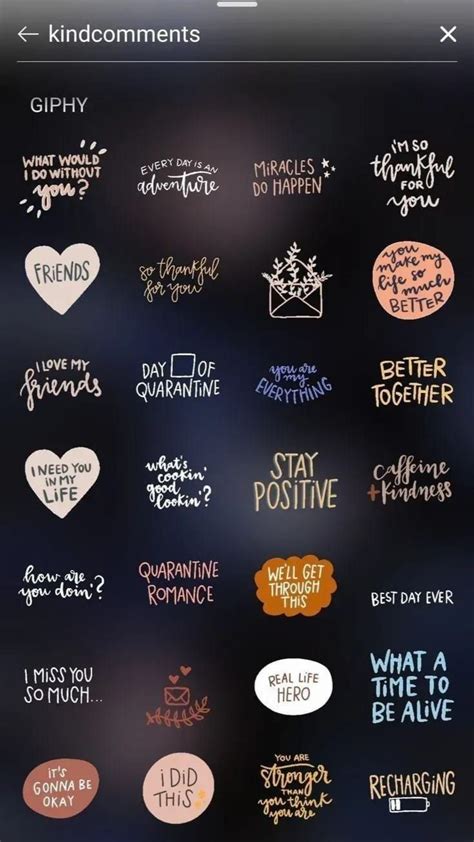 kindcomments
GIPHY
WHAT WOULD
I DO WITHOUT
you?
EVERY DAY IS AN
adventure
MIRACLES
DO HAPPEN
I'M SO
thankful
FOR
you
FRIENDS
so thankful
for you
you
make my
life so
much
BETTER
I LOVE MY
friends
DAY OF
QUARANTINE
you are
my
EVERYTHING
BETTER
TOGETHER
I NEED YOU
IN MY
LIFE
what's
cookin'
good
lookin'?
STAY
POSITIVE
Caffeine
+Kindness
how are
you doin'?
QUARANTINE
ROMANCE
WE'LL GET
THROUGH
THIS
BEST DAY EVER
I MISS YOU
SO MUCH...
REAL LIFE
HERO
WHAT A
TIME TO
BE ALIVE
IT'S
GONNA BE
OKAY
I DID
THIS
YOU ARE
Stronger
THAN
you think
you are
RECHARGING